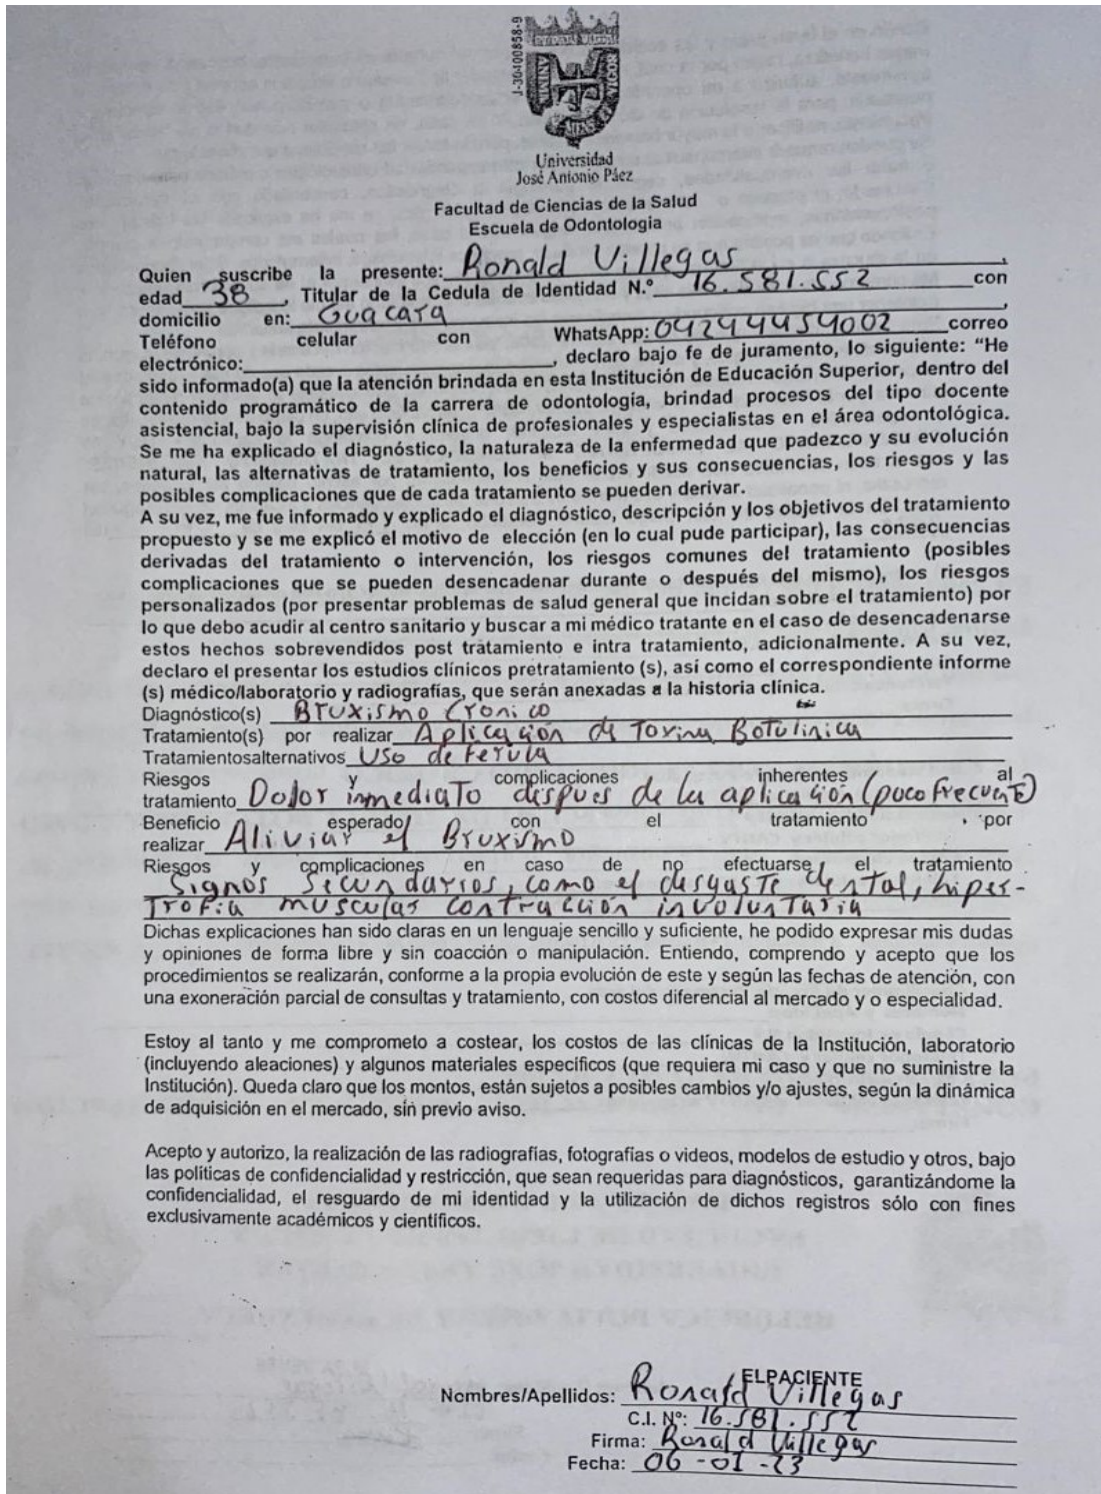 J-30400858-9
Universidad
José Antonio Páez
Facultad de Ciencias de la Salud
Escuela de Odontología
Quien suscribe la presente: Ronald Villegas,
edad 38, Titular de la Cedula de Identidad N.º 16.581.552 con
domicilio en: Guacara,
Teléfono celular con WhatsApp: 04244454002 correo
electrónico: , declaro bajo fe de juramento, lo siguiente: “He
sido informado(a) que la atención brindada en esta Institución de Educación Superior, dentro del
contenido programático de la carrera de odontología, brindad procesos del tipo docente
asistencial, bajo la supervisión clínica de profesionales y especialistas en el área odontológica.
Se me ha explicado el diagnóstico, la naturaleza de la enfermedad que padezco y su evolución
natural, las alternativas de tratamiento, los beneficios y sus consecuencias, los riesgos y las
posibles complicaciones que de cada tratamiento se pueden derivar.
A su vez, me fue informado y explicado el diagnóstico, descripción y los objetivos del tratamiento
propuesto y se me explicó el motivo de elección (en lo cual pude participar), las consecuencias
derivadas del tratamiento o intervención, los riesgos comunes del tratamiento (posibles
complicaciones que se pueden desencadenar durante o después del mismo), los riesgos
personalizados (por presentar problemas de salud general que incidan sobre el tratamiento) por
lo que debo acudir al centro sanitario y buscar a mi médico tratante en el caso de desencadenarse
estos hechos sobrevendidos post tratamiento e intra tratamiento, adicionalmente. A su vez,
declaro el presentar los estudios clínicos pretratamiento (s), así como el correspondiente informe
(s) médico/laboratorio y radiografías, que serán anexadas a la historia clínica.
Diagnóstico(s) Bruxismo Crónico
Tratamiento(s) por realizar Aplicación de Toxina Botulinica
Tratamientosalternativos Uso de Ferula
Riesgos y complicaciones inherentes al
tratamiento Dolor inmediato despues de la aplicación (poco frecuente)
Beneficio esperado con el tratamiento por
realizar Aliviar el Bruxismo
Riesgos y complicaciones en caso de no efectuarse el tratamiento
Signos secundarios, como el desgaste dental, hiper-
trofia muscular contracción involuntaria
Dichas explicaciones han sido claras en un lenguaje sencillo y suficiente, he podido expresar mis dudas
y opiniones de forma libre y sin coacción o manipulación. Entiendo, comprendo y acepto que los
procedimientos se realizarán, conforme a la propia evolución de este y según las fechas de atención, con
una exoneración parcial de consultas y tratamiento, con costos diferencial al mercado y o especialidad.
Estoy al tanto y me comprometo a costear, los costos de las clínicas de la Institución, laboratorio
(incluyendo aleaciones) y algunos materiales específicos (que requiera mi caso y que no suministre la
Institución). Queda claro que los montos, están sujetos a posibles cambios y/o ajustes, según la dinámica
de adquisición en el mercado, sin previo aviso.
Acepto y autorizo, la realización de las radiografías, fotografías o videos, modelos de estudio y otros, bajo
las políticas de confidencialidad y restricción, que sean requeridas para diagnósticos, garantizándome la
confidencialidad, el resguardo de mi identidad y la utilización de dichos registros sólo con fines
exclusivamente académicos y científicos.
ELPACIENTE
Nombres/Apellidos: Ronald Villegas
C.I. Nº: 16.581.552
Firma: Ronald Villegas
Fecha: 06-01-23